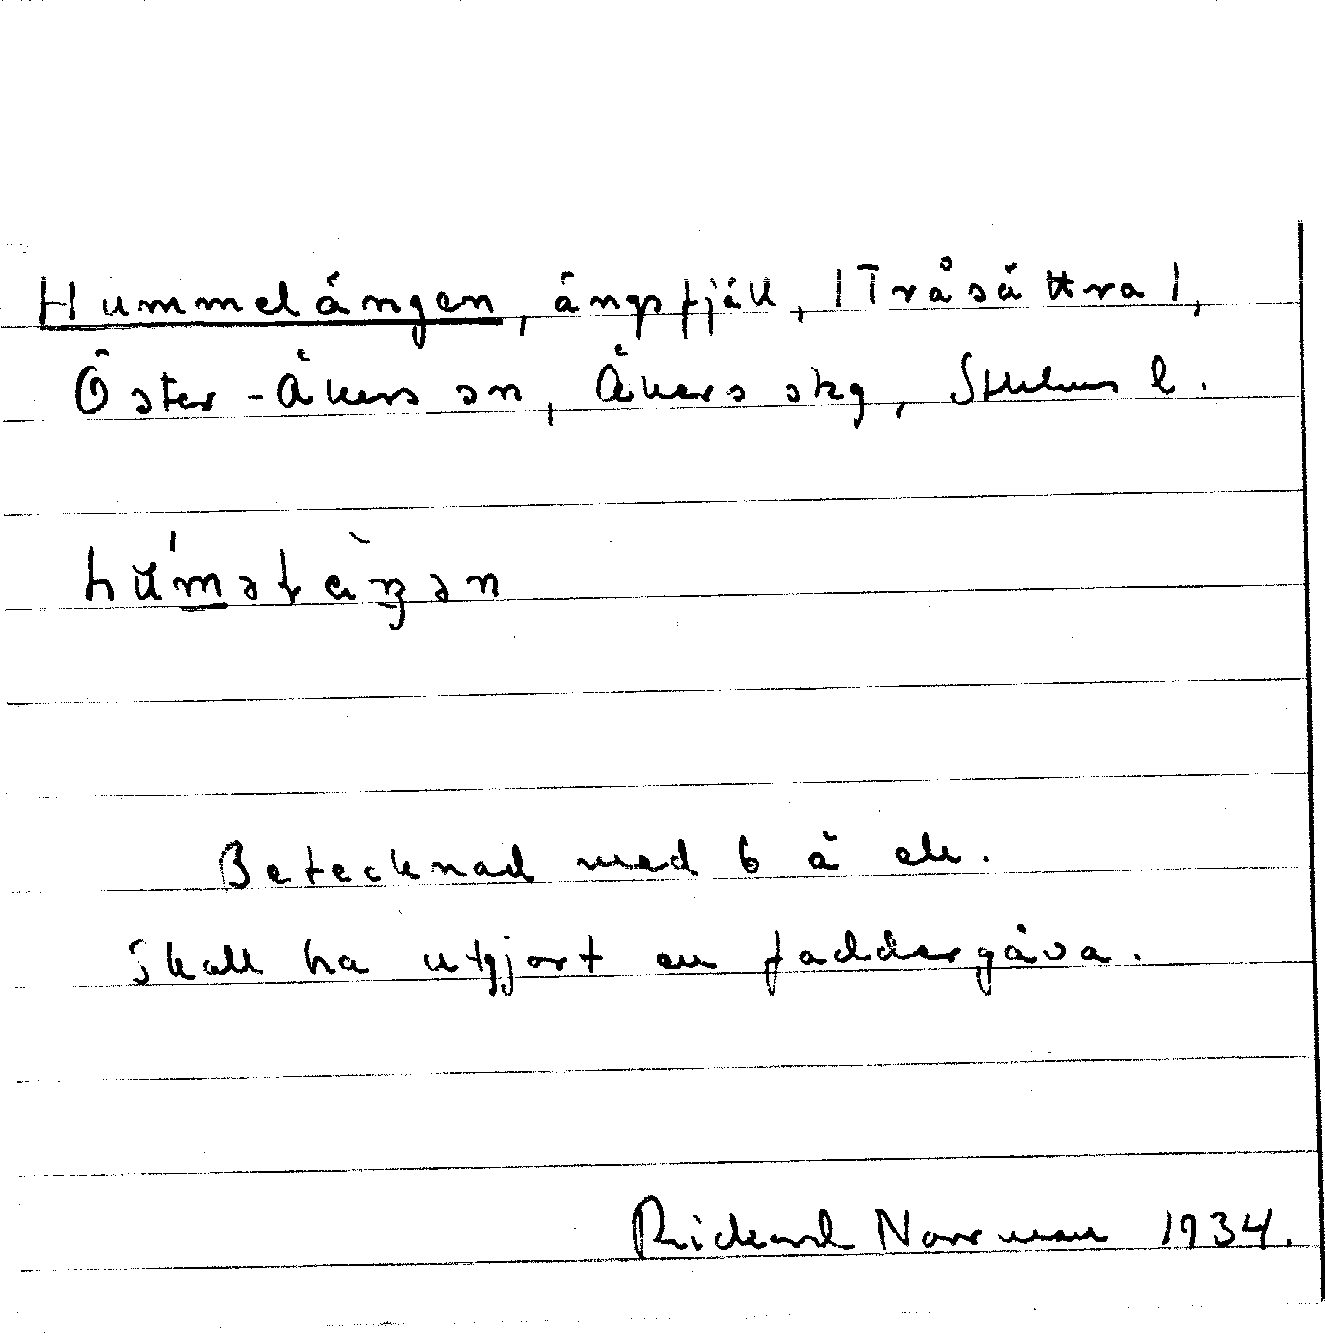 Hummelängen, ängsfjäll, |Tråsättra|,
Öster-Åkers sn, Åkers skg, Sthlms l.
Betecknad med 6 å ek.
Skall ha utgjort en faddergåva.
Rickard Norrman 1934.